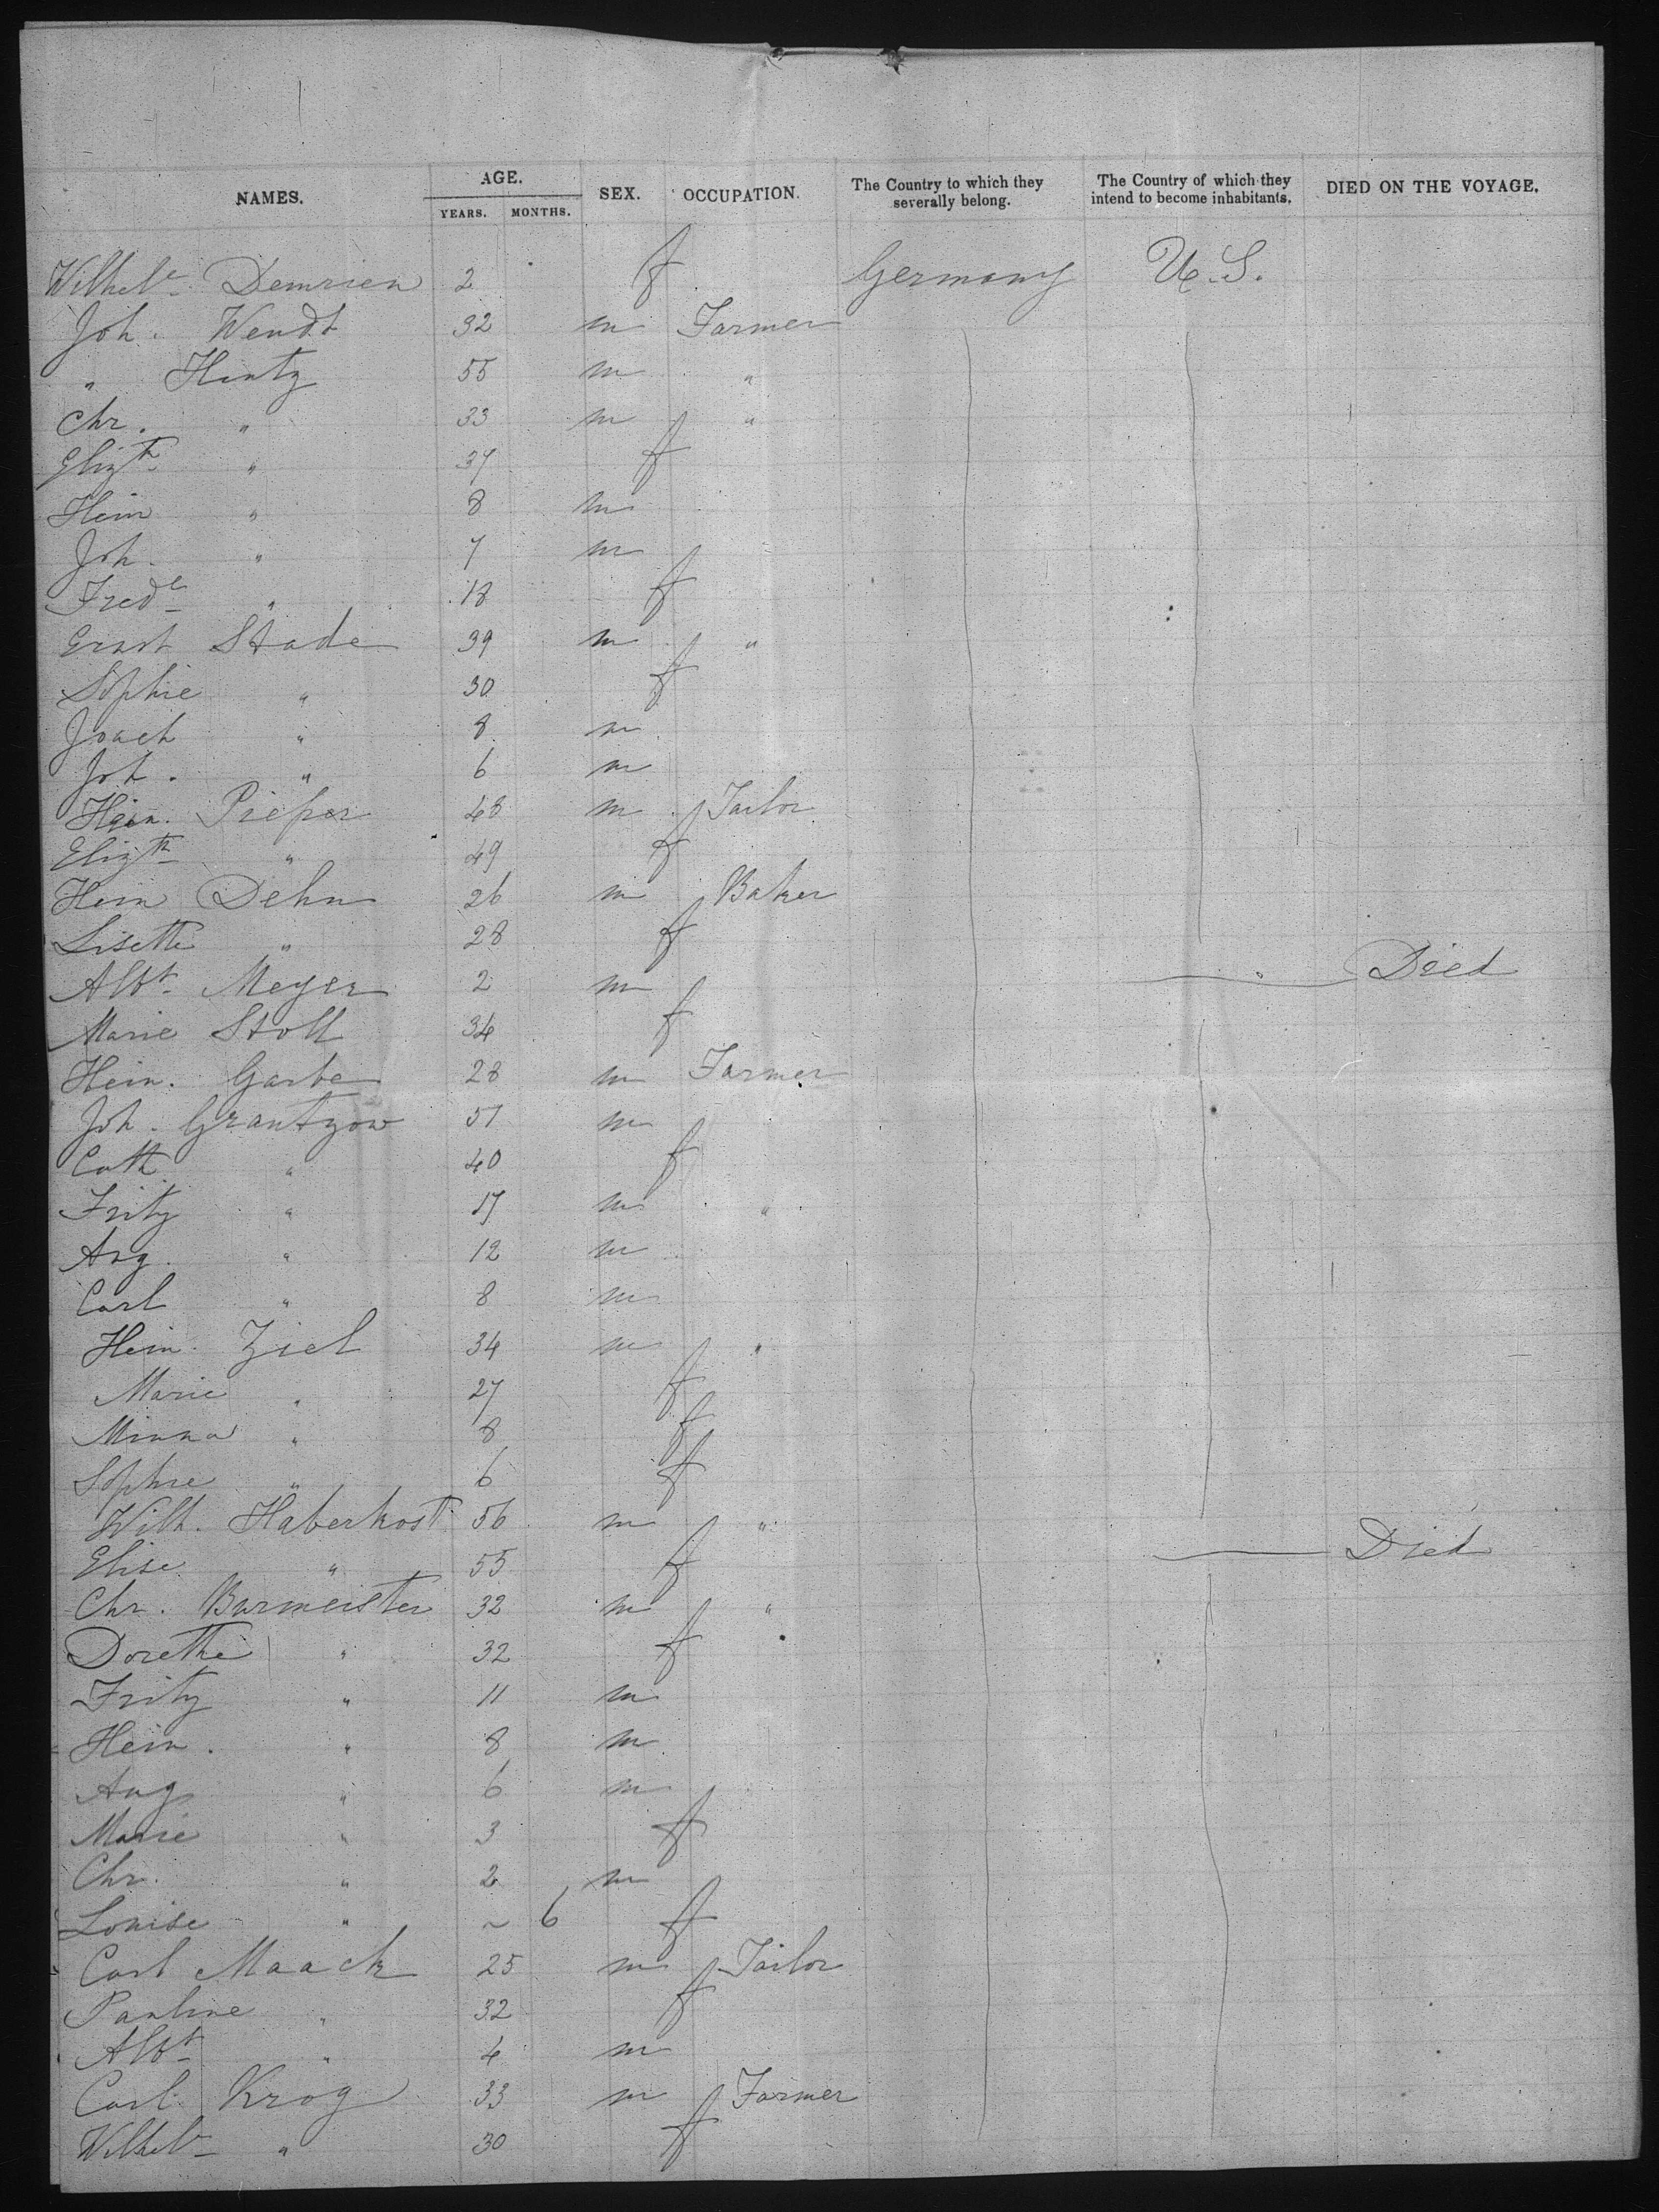 NAMES. AGE. YEARS. MONTHS. SEX. OCCUPATION. The Country to which they severally belong. The Country of which they intend to become inhabitants. DIED ON THE VOYAGE.
Wilhel^e Demrien 2 f Germany U.S.
Joh. Wendt 32 m Farmer
" Hintz 55 m "
Chr. " 33 m "
Eliz^th " 37 f
Hein " 8 m
Joh. " 7 m
Fred^e " 18 f
Ernst Stade 39 m "
Sophie " 30 f
Joach " 8 m
Joh. " 6 m
Hein. Pieper 48 m Tailor
Eliz^th " 49 f
Hein Dehn 26 m Baker
Lisette " 28 f
Alb^t Meyer 2 m Died
Marie Stoll 34 f
Hein. Garbe 28 m Farmer
Joh. Grantzow 51 m
Cath " 40 f
Fritz " 17 m "
Aug. " 12 m
Carl " 8 m
Hein. Ziel 34 m "
Marie " 27 f
Minna " 8 f
Sophie " 6 f
Wilh. Haberkost 56 m "
Elise " 55 f Died
Chr. Burmeister 32 m "
Dorethe " 32 f
Fritz " 11 m
Hein. " 8 m
Aug " 6 m
Marie " 3 f
Chr. " 2 m
Louise " ~ 6 f
Carl Maack 25 m Tailor
Pauline " 32 f
Alb^t " 4 m
Carl Krog 33 m Farmer
Wilhel^e " 30 f